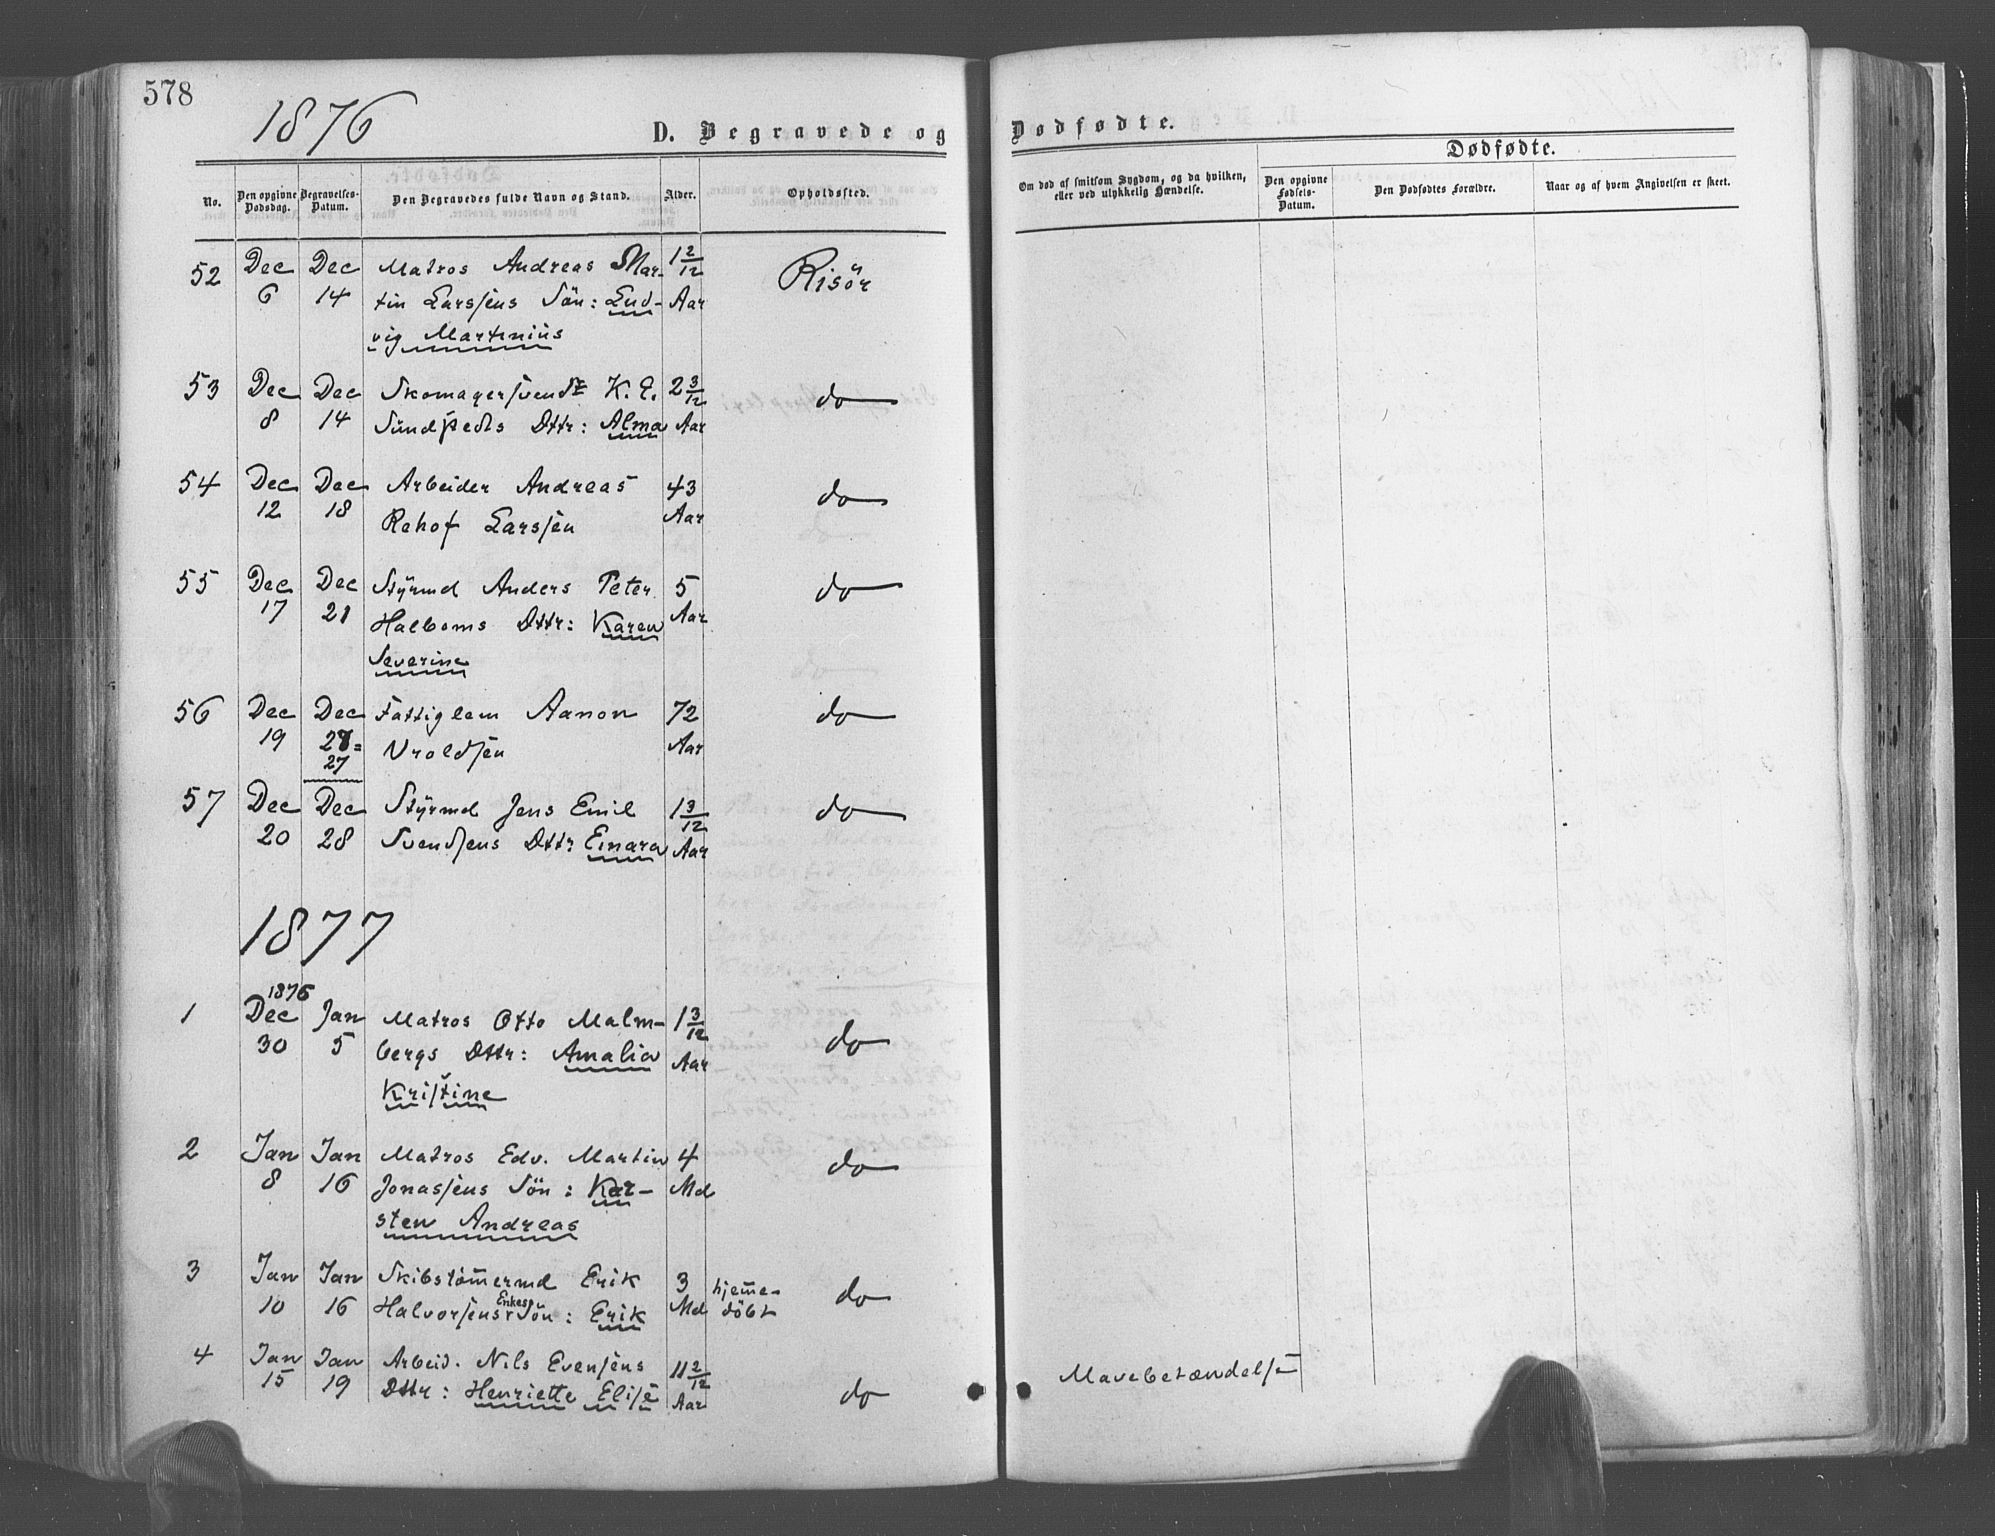 578
1876
D. Begravede og
Dødfødte.
No.
Den opgivne Dødsdag.
Begravelses-Datum.
Den Begravedes fulde Navn og Stand.
Alder.
Opholdssted.
Om død af smitsom Sygdom, og da hvilken, eller ved ulykkelig Hændelse.
Dødfødte.
Den opgivne Fødsels-Datum.
Den Dødfødtes Forældre.
Naar og af hvem Angivelsen er skeet.
52 Dec Dec Matros Andreas Mar- 1 2/12 Risör
6 14 tin Larsens Sön: Lud- Aar
vig Martinius
53 Dec Dec Skomagersvend K. E. 2 3/12 do
8 14 Dttr: Alma Aar
54 Dec Dec Arbeider Andreas 43 do
12 18 Rehof Larsen Aar
55 Dec Dec Styrmd Anders Peter 5 do
17 21 Halboms Dttr: Karen Aar
Severine
56 Dec Dec Fattiglem Aanon 72 do
19 27= Vroldsen Aar
27
57 Dec Dec Styrmd Jens Emil 1 3/12 do
20 28 Svendsens Dttr Einara Aar
1877
1876
1 Dec Jan Matros Otto Malm- 1 3/12 do
30 5 bergs Dttr: Amalia Aar
Kristine
2 Jan Jan Matros Edv. Martin 4 do
8 16 Jonassens Sön: Kar- Md
sten Andreas
3 Jan Jan Skibstömermd Erik 3 hjeme- do
10 16 Halvorsens Enkes Sön: Erik Md döbt
4 Jan Jan Arbeid. Nils Evensens 11 2/12 Mavebetændelse
15 19 Dttr: Henriette Elise Aar do